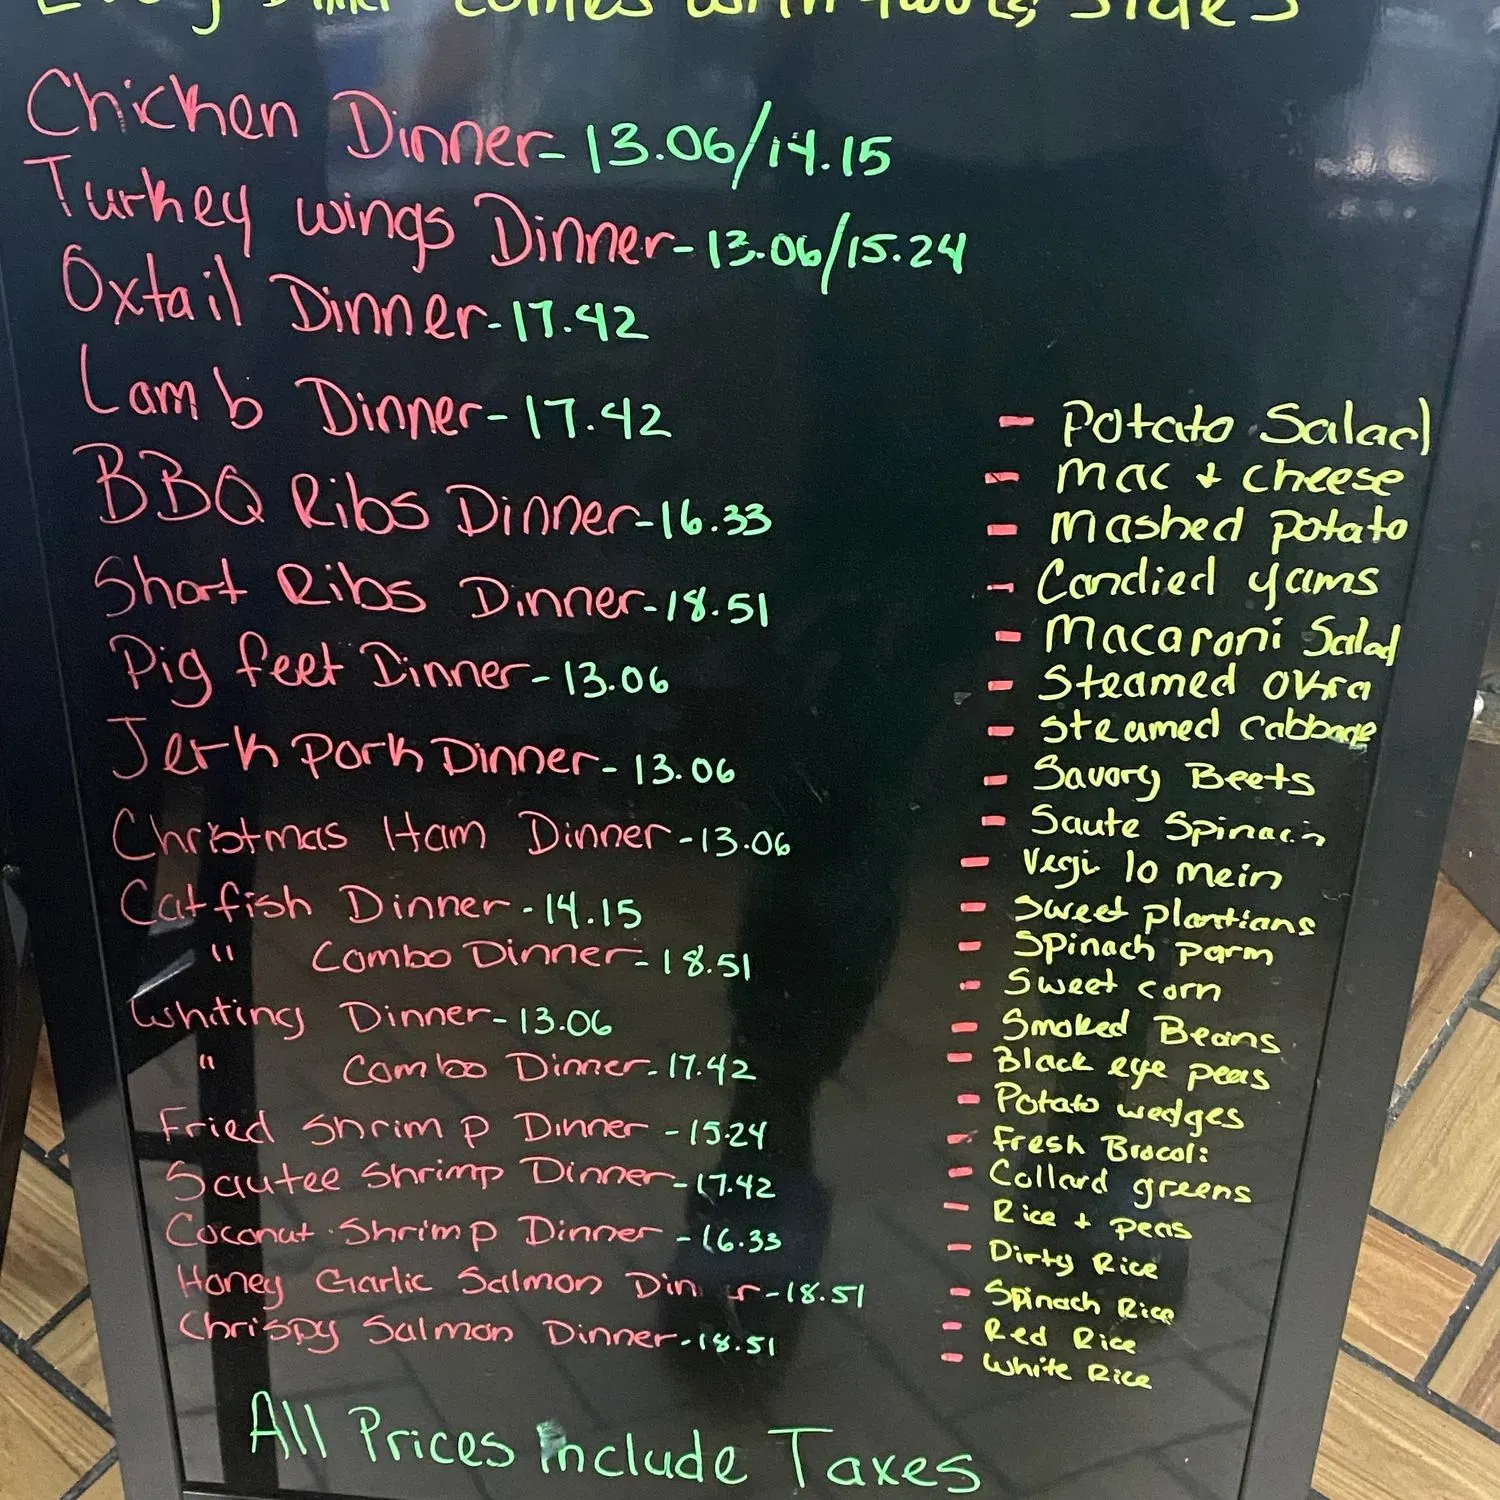 Every Dinner comes with two sides
Chicken Dinner- 13.06/14.15
Turkey wings Dinner- 13.06/15.24
Oxtail Dinner- 17.42
Lamb Dinner- 17.42
BBQ Ribs Dinner- 16.33
Short Ribs Dinner- 18.51
Pig feet Dinner- 13.06
Jerk pork Dinner- 13.06
Christmas Ham Dinner- 13.06
Catfish Dinner- 14.15
" Combo Dinner- 18.51
Whiting Dinner- 13.06
" Combo Dinner- 17.42
Fried Shrimp Dinner- 15.24
Sautee Shrimp Dinner- 17.42
Coconut Shrimp Dinner- 16.33
Honey Garlic Salmon Din er- 18.51
Chrispy Salmon Dinner- 18.51
- Potato Salad
- Mac + cheese
- Mashed potato
- Candied yams
- Macaroni Salad
- Steamed okra
- Steamed cabbage
- Savory Beets
- Saute Spinach
- Vegi lo mein
- Sweet plantians
- Spinach parm
- Sweet corn
- Smoked Beans
- Black eye peas
- Potato wedges
- Fresh Brocoli
- Collard greens
- Rice + peas
- Dirty Rice
- Spinach Rice
- Red Rice
- White Rice
All Prices Include Taxes